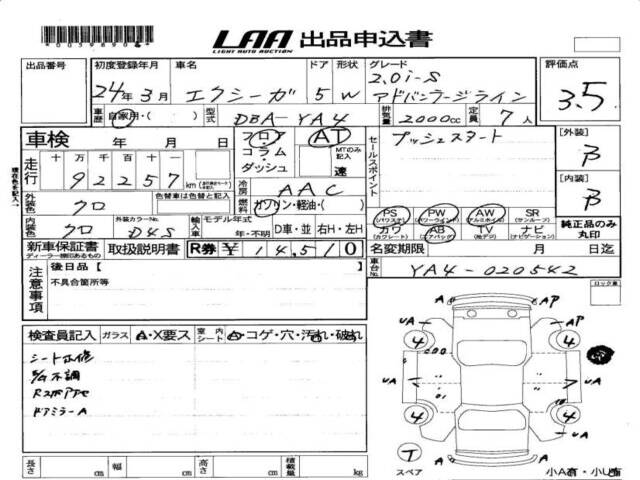 *0059890*
LAA 出品申込書
LIGHT AUTO AUCTION
出品番号 初度登録年月 車名 ドア 形状 グレード 評価点
24年3月 エクシーガ 5 W 2.0i-S アドバンテージライン 3.5
車歴 自家用・( ) 型式 DBA-YA4 排気量 2000cc 定員 7人
車検 年 月 日 フロア コラム・ダッシュ AT MTのみ記入 速
セールスポイント プッシュスタート
[外装] B
[内装] B
走行 十万 万 千 百 十 一
92257 km
冷房 AAC
外装色 クロ 色替車は色替と記入 燃料 ガソリン・軽油・( )
PS (パワステ) PW (パワーウィンド) AW (アルミホイル) SR (サンルーフ)
カワ (カワシート) AB (エアバッグ) TV (地デジ) ナビ (ナビゲーション)
純正品のみ丸印
内装色 クロ 外装カラーNo. D4S 輸入車 モデル年式 年・不明 D車・並 右H・左H
新車保証書 ディーラー様印あるもの 取扱説明書 R券 ¥14,510
名変期限 月 日迄
注意事項 後日品【 】
不具合箇所等
車台No. YA4-020542
ロック車
検査員記入 ガラス A・X要ス 室内シート A・コゲ・穴・汚れ・破れ
シート
不調
ドアミラーA
A AP
UA AP
4 4
UA UA
4 4
UA
A A
T
スペア
小A有・小U有
長さ cm 幅 cm 高さ cm 積載量 kg
現在色を記入